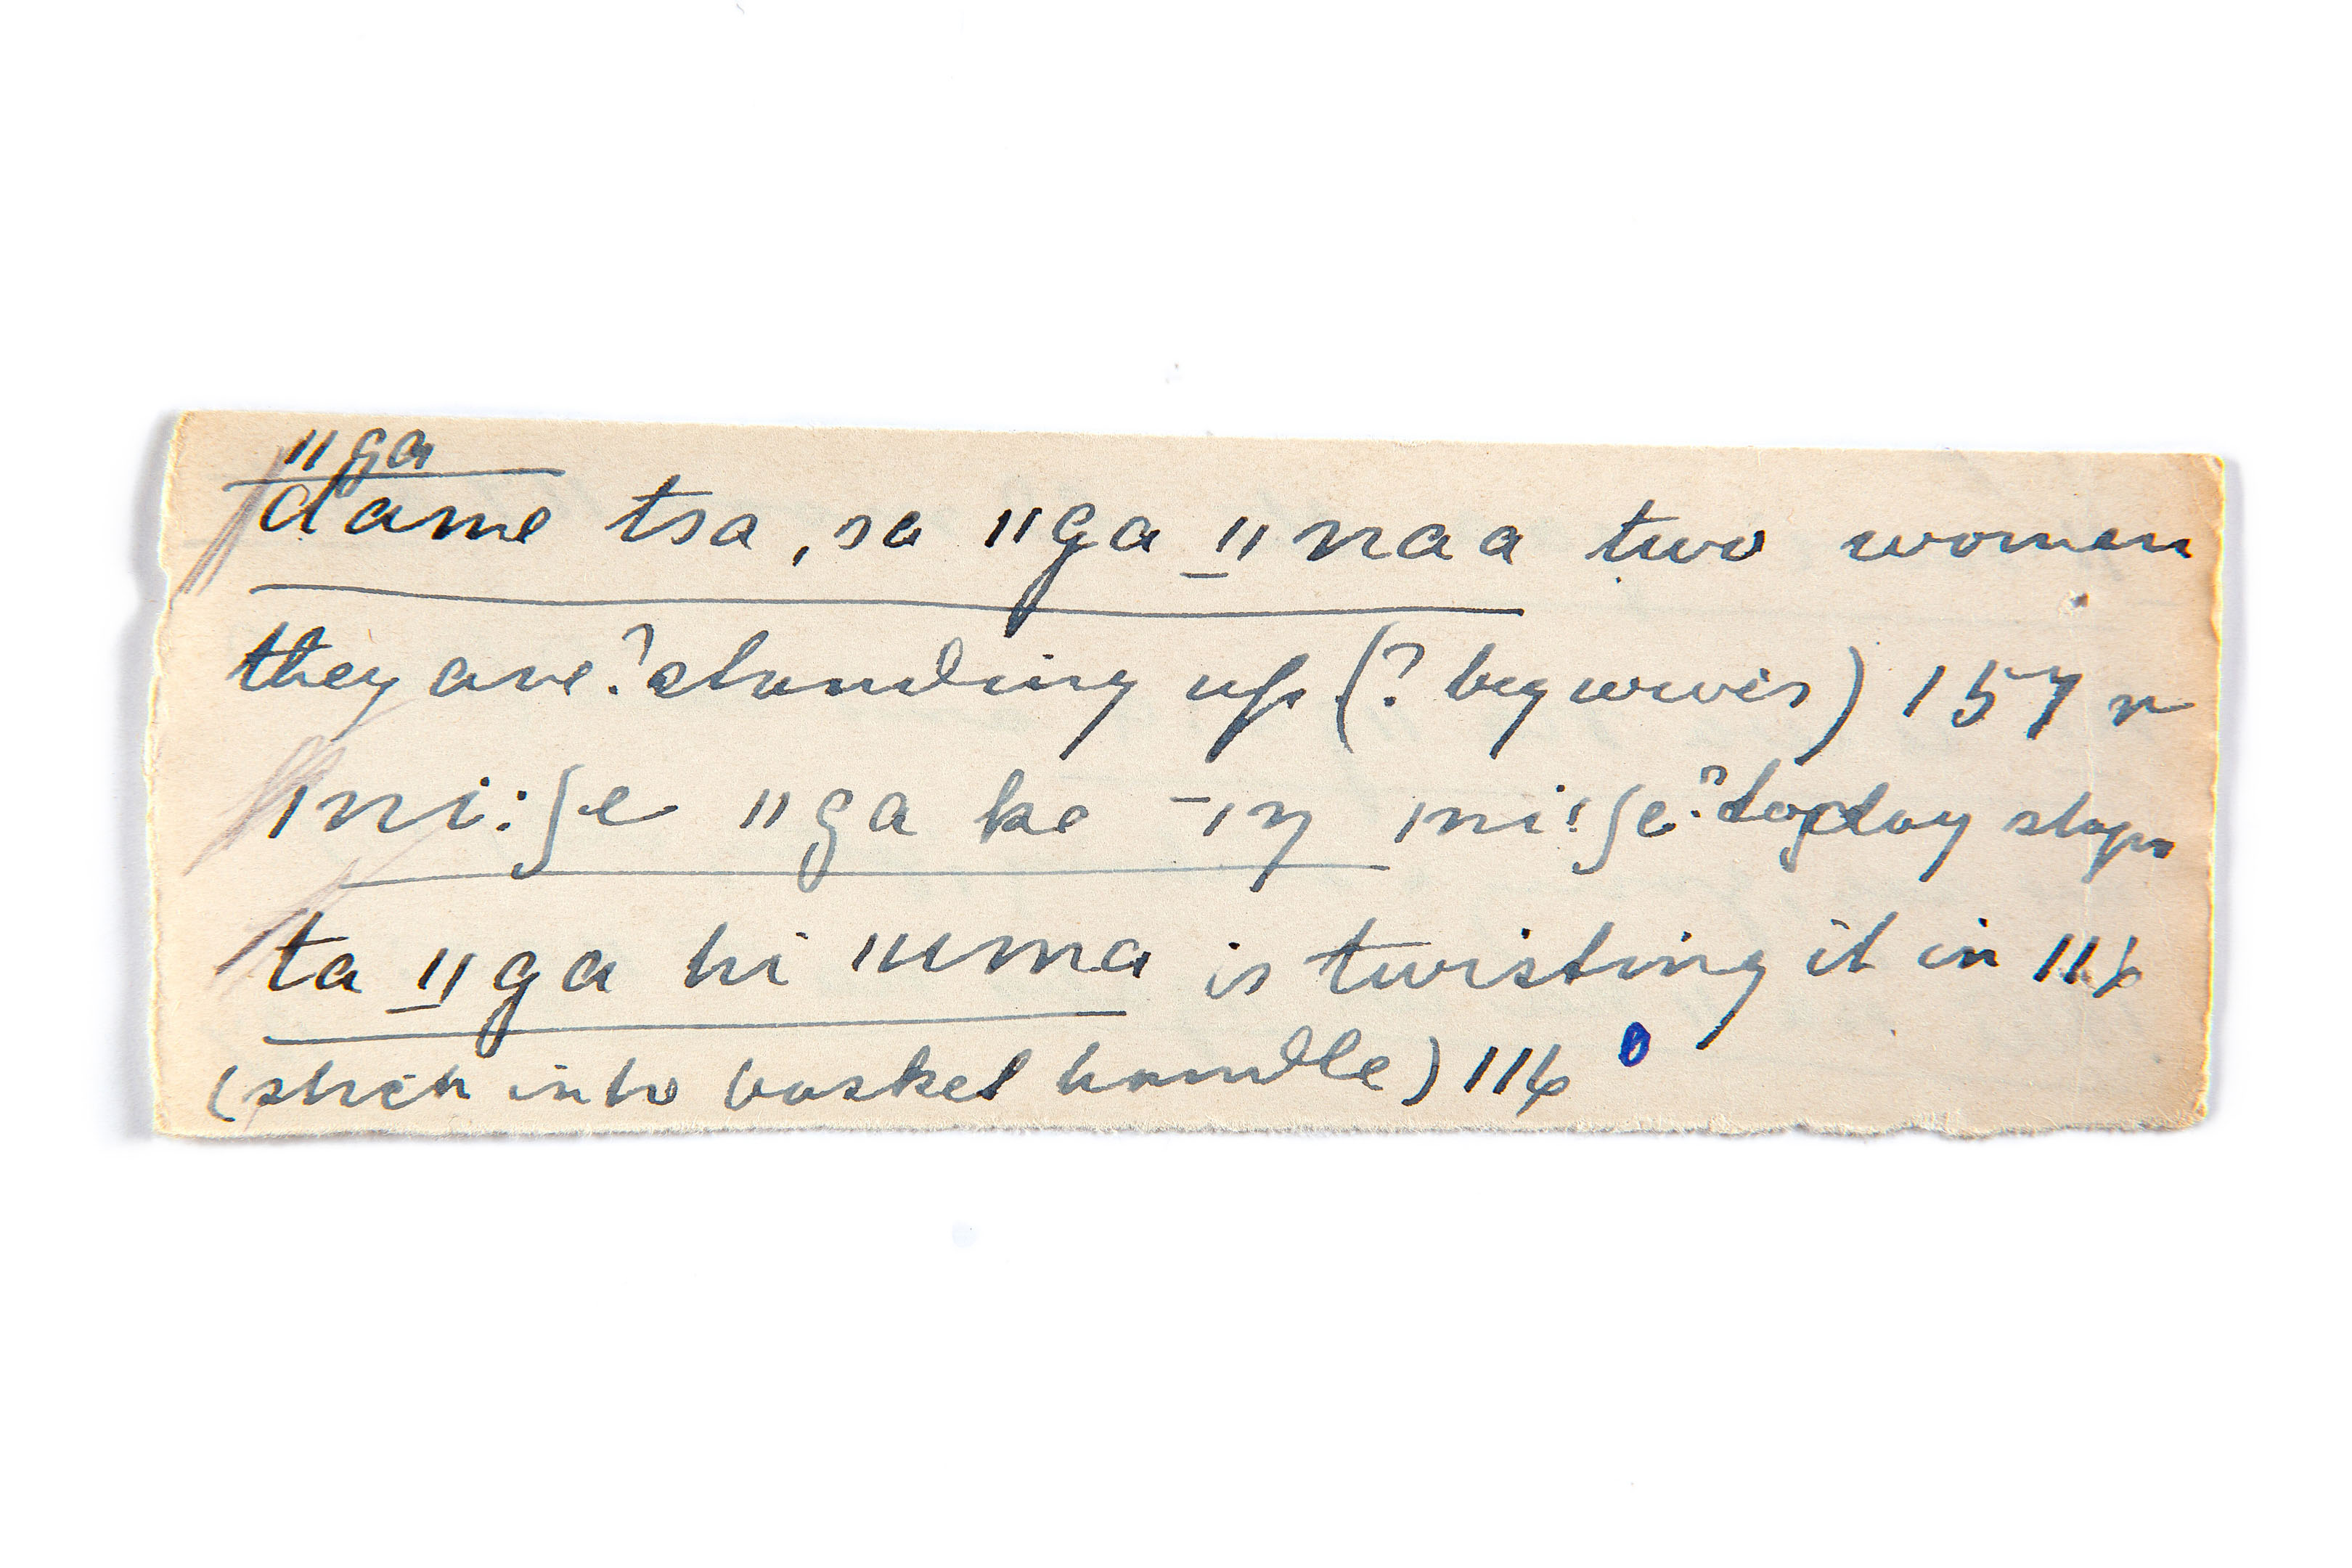 ǁga
dame tsa, sa ǁga ǁnaa two women
they are ? standing up (? beg wives) 157 n
ǀni:ʃe ǁga ke ˉǀŋ ǀni:ʃe ? today stops
ta ǁga hi ǁuma is twisting it in 116
(stick into basket handle) 116